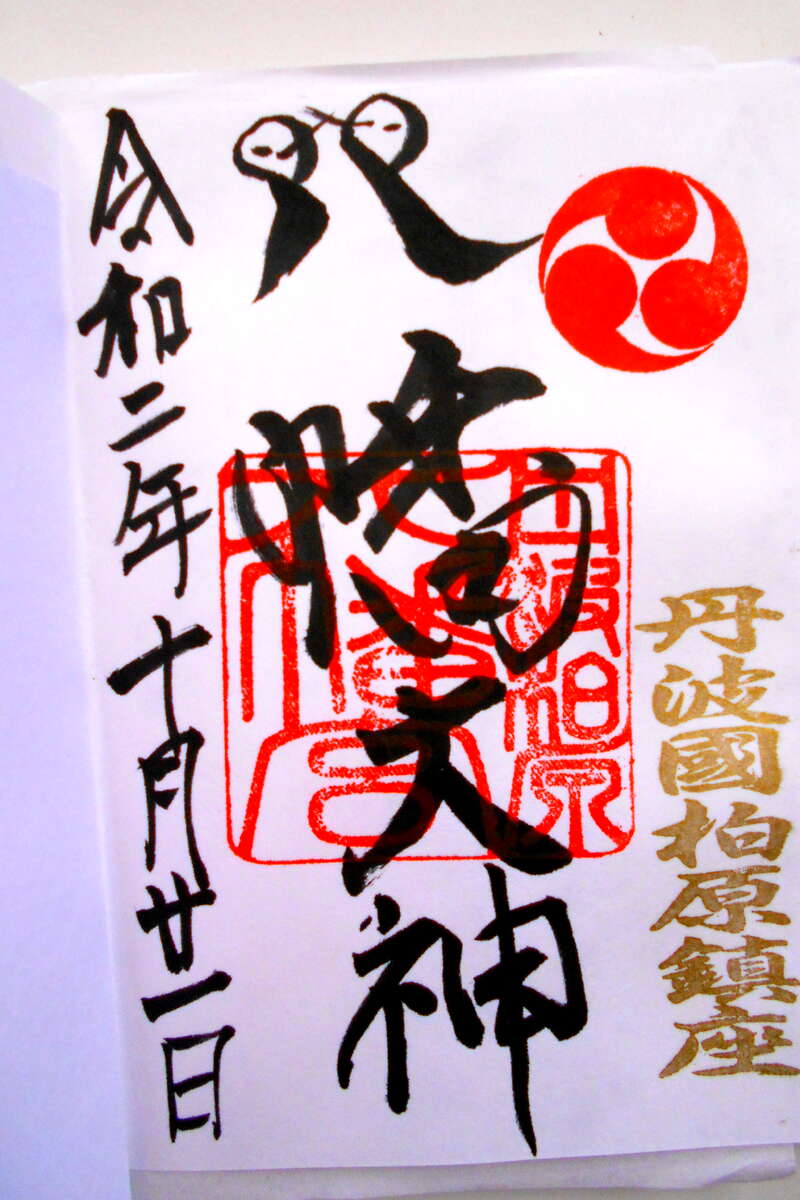 丹波國柏原鎮座
八幡大神
丹波柏原
令和二年十月廿一日